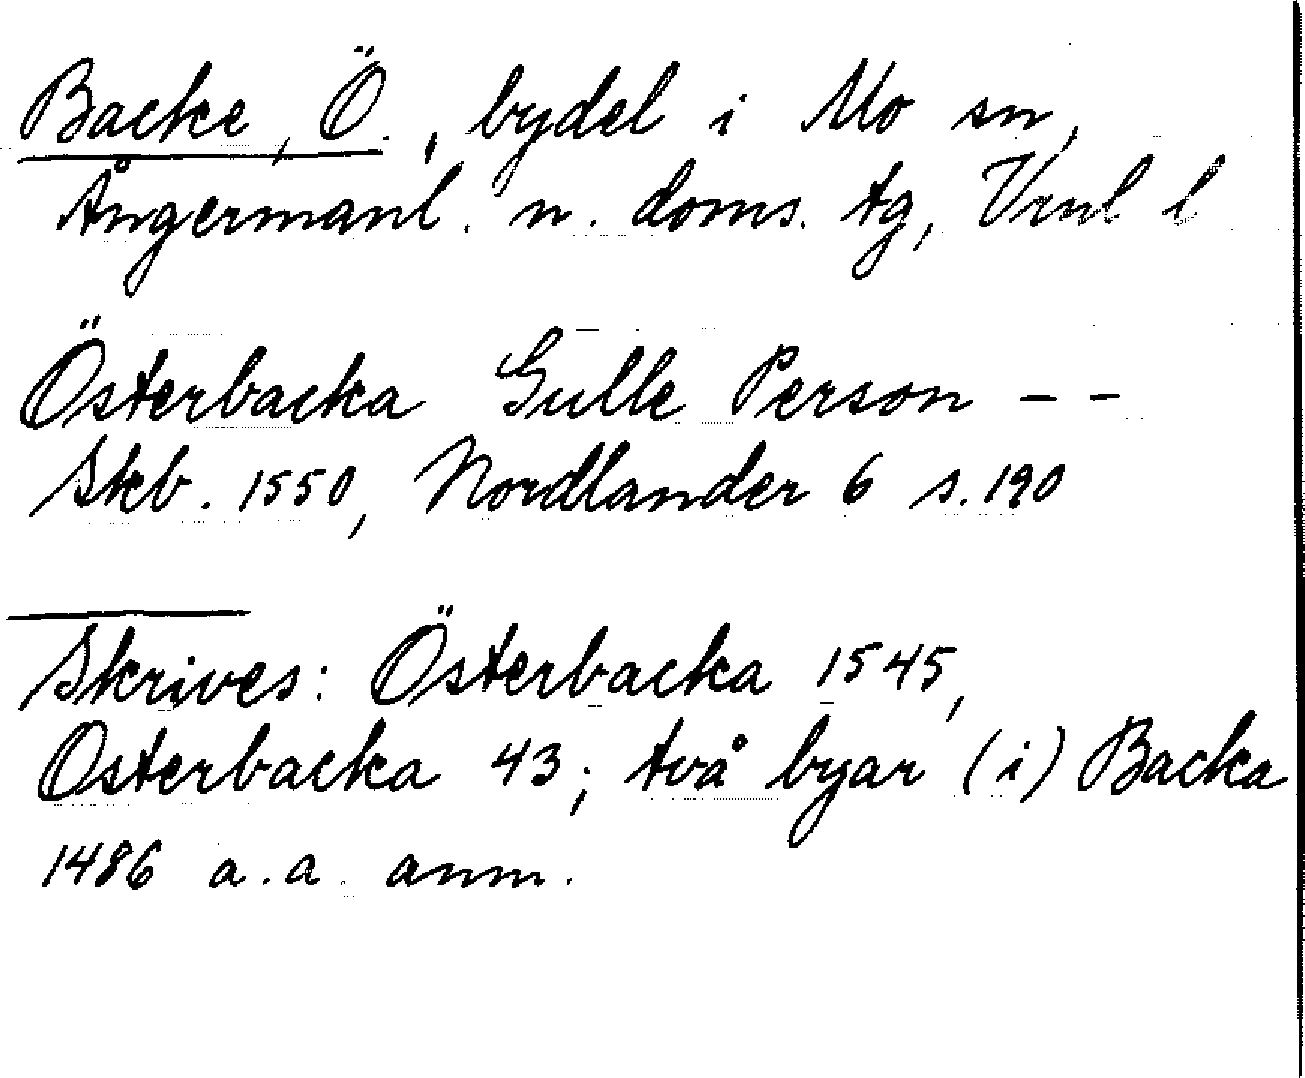 Backe, Ö., bydel i Mo sn,
Ångermanl. n. doms. tg, Vnl l
Österbacka Gulle Person - -
Skb. 1550, Nordlander 6 s. 190
Skrives: Österbacka 1545,
Osterbacka 43; två byar (i) Backa
1486 a. a. anm.